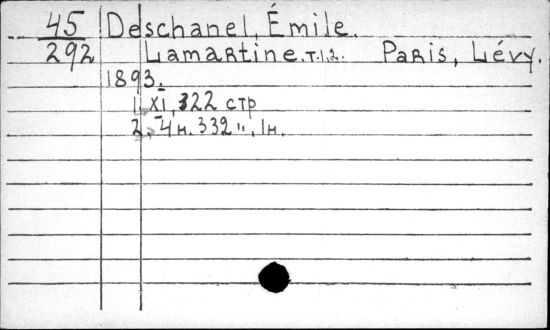 45 Deschanel, Émile.
292 Lamartine. т.1,2. Paris, Lévy.
1893.
1. XI, 322 стр
2. 4н. 332 ", 1н.